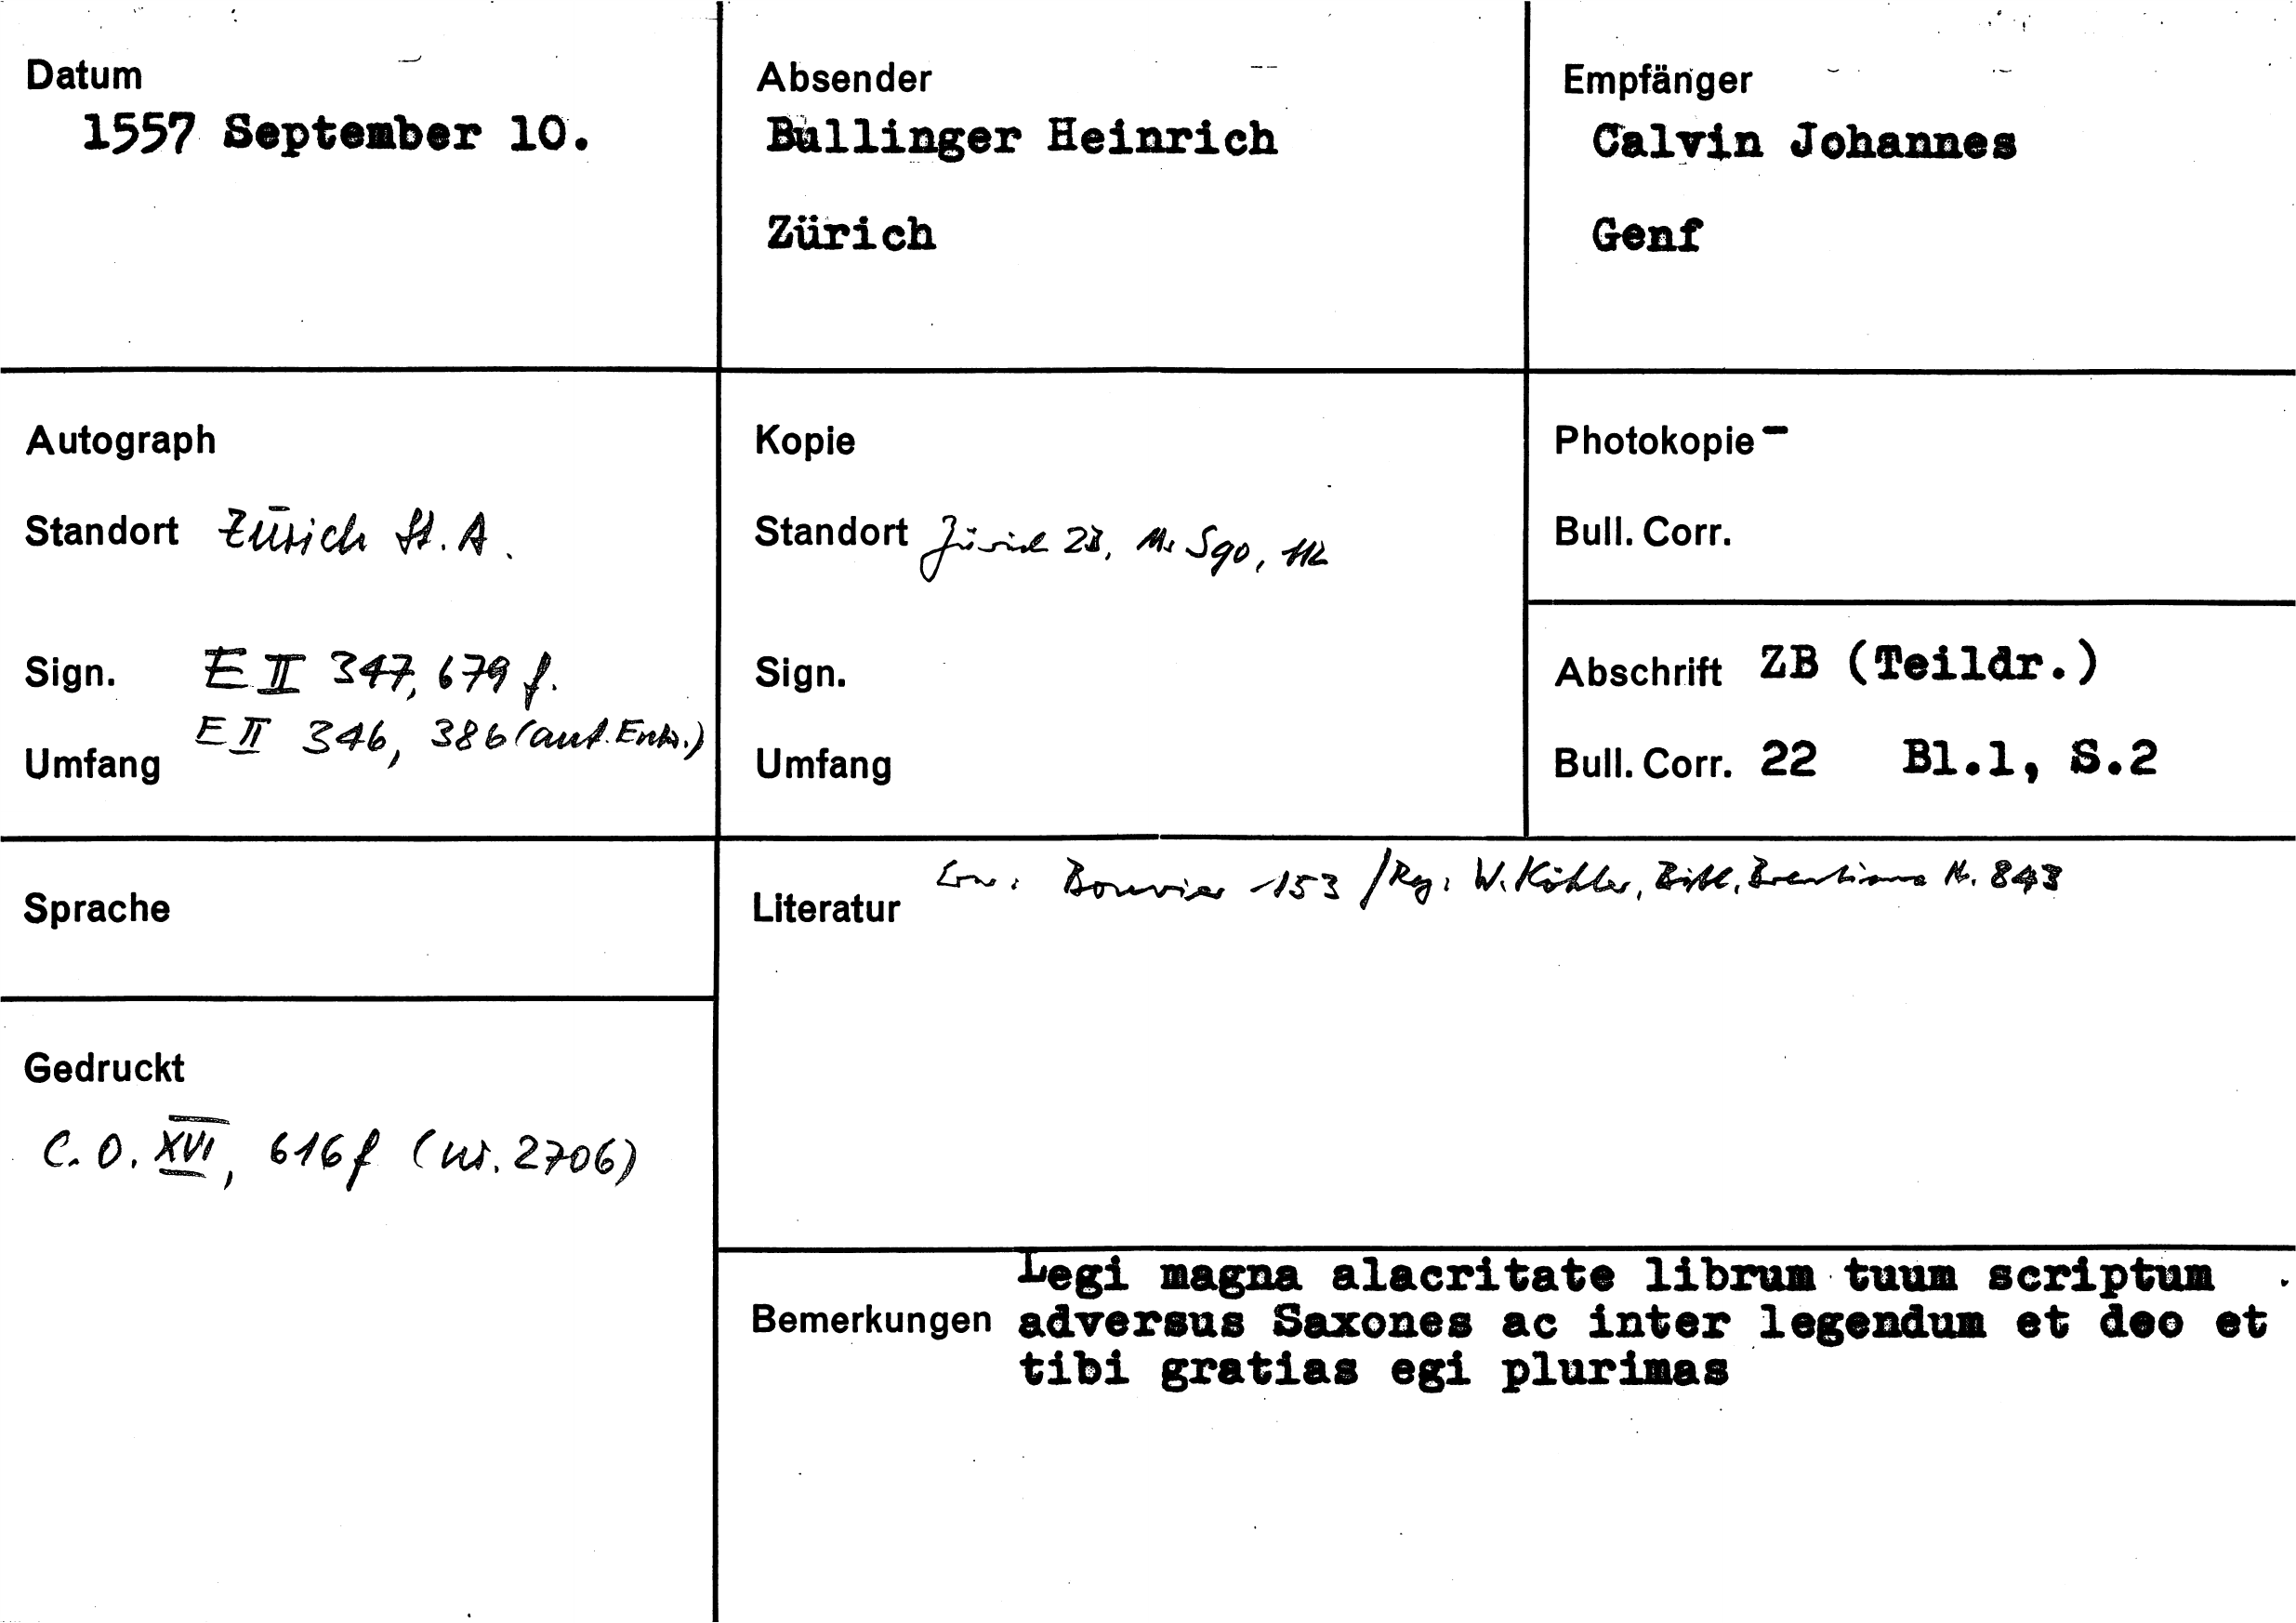 Datum
1557 September 10.
Absender
Bullinger Heinrich
Zürich
Empfänger
Calvin Johannes
Genf
Autograph
Standort Zürich St. A.
Sign. E II 347, 679 f.
E II 346, 386 (aut. Entw.)
Umfang
Kopie
Standort Zürich ZB, Ms S 90, 112
Sign.
Umfang
Photokopie -
Bull. Corr.
Abschrift ZB (Teildr.)
Bull. Corr. 22 Bl.1, S.2
Sprache
Literatur Bouvier 153 / Reg: W. Köhler, Bibl. Brentiana Nr. 843
Gedruckt
C. O. XVI, 616 f (Nr. 2706)
Bemerkungen
Legi magna alacritate librum tuum scriptum
adversus Saxones ac inter legendum et deo et
tibi gratias egi plurimas